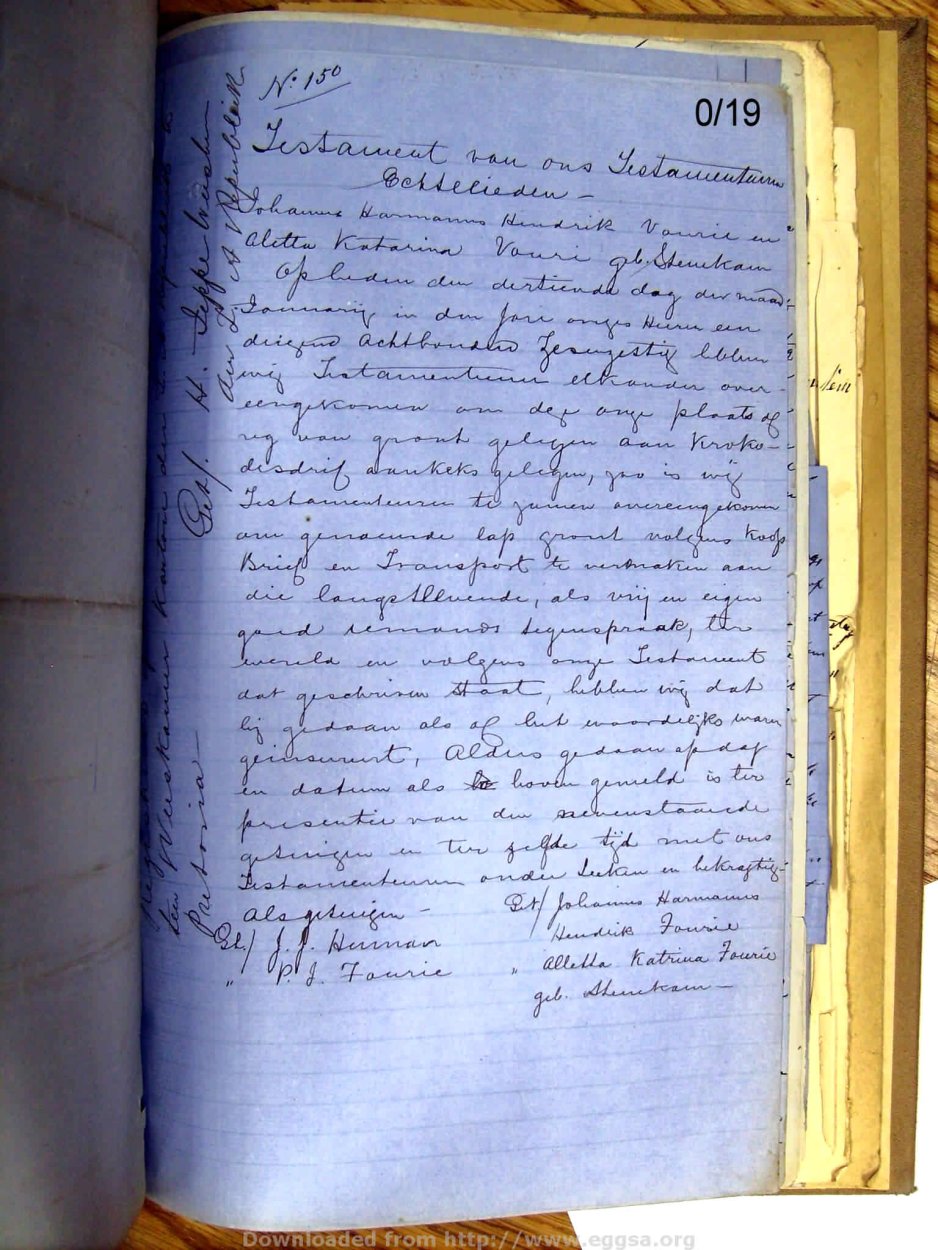 No 150
0/19
Testament van ons Testamenturen
Echtelieden -
Johannes Harmanns Hendrik Vourie en
Aletta Katarina Vouri geb. Stenekam
Op heden den dertiende dag der maand
Jannarij in den Jare onzes Heren een
duizend Achthonderd Zesenzestig hebben
wij Testamenteuren elkander over-
eengekomen om deze onze plaats of
reg van gront gelegen aan Kroko-
desdrif gelegen, zoo is wij
Testamenteuren te zamen overeengekomen
om genoemde lap gront volgens Koop
Brief en Transport te vermaken aan
die langstlevende, als vrij en eigen
goed iemands tegenspraak, ter
wereld en volgens onze Testament
dat geschreven staat, hebben wij dat
bij gedaan als of het woordelijks waren
geinsereert, Aldus gedaan op dag
en datum als boven gemeld is ter
presentie van den nevenstaande
getuigen en ter zelfde tijd met ons
Testamenteuren onder Teeken en bekragtig-
Als getuigen -
Get/ Johannes Harmanus
Hendrik Fourie
Get/ J. J. Herman
" P. J. Fourie
" Alletta Katrina Fourie
geb. Stenekam -
ten Weeskamer Kantoor
Pretoria -
Get/ H.
der Z. A Republiek
Downloaded from http://www.eggsa.org